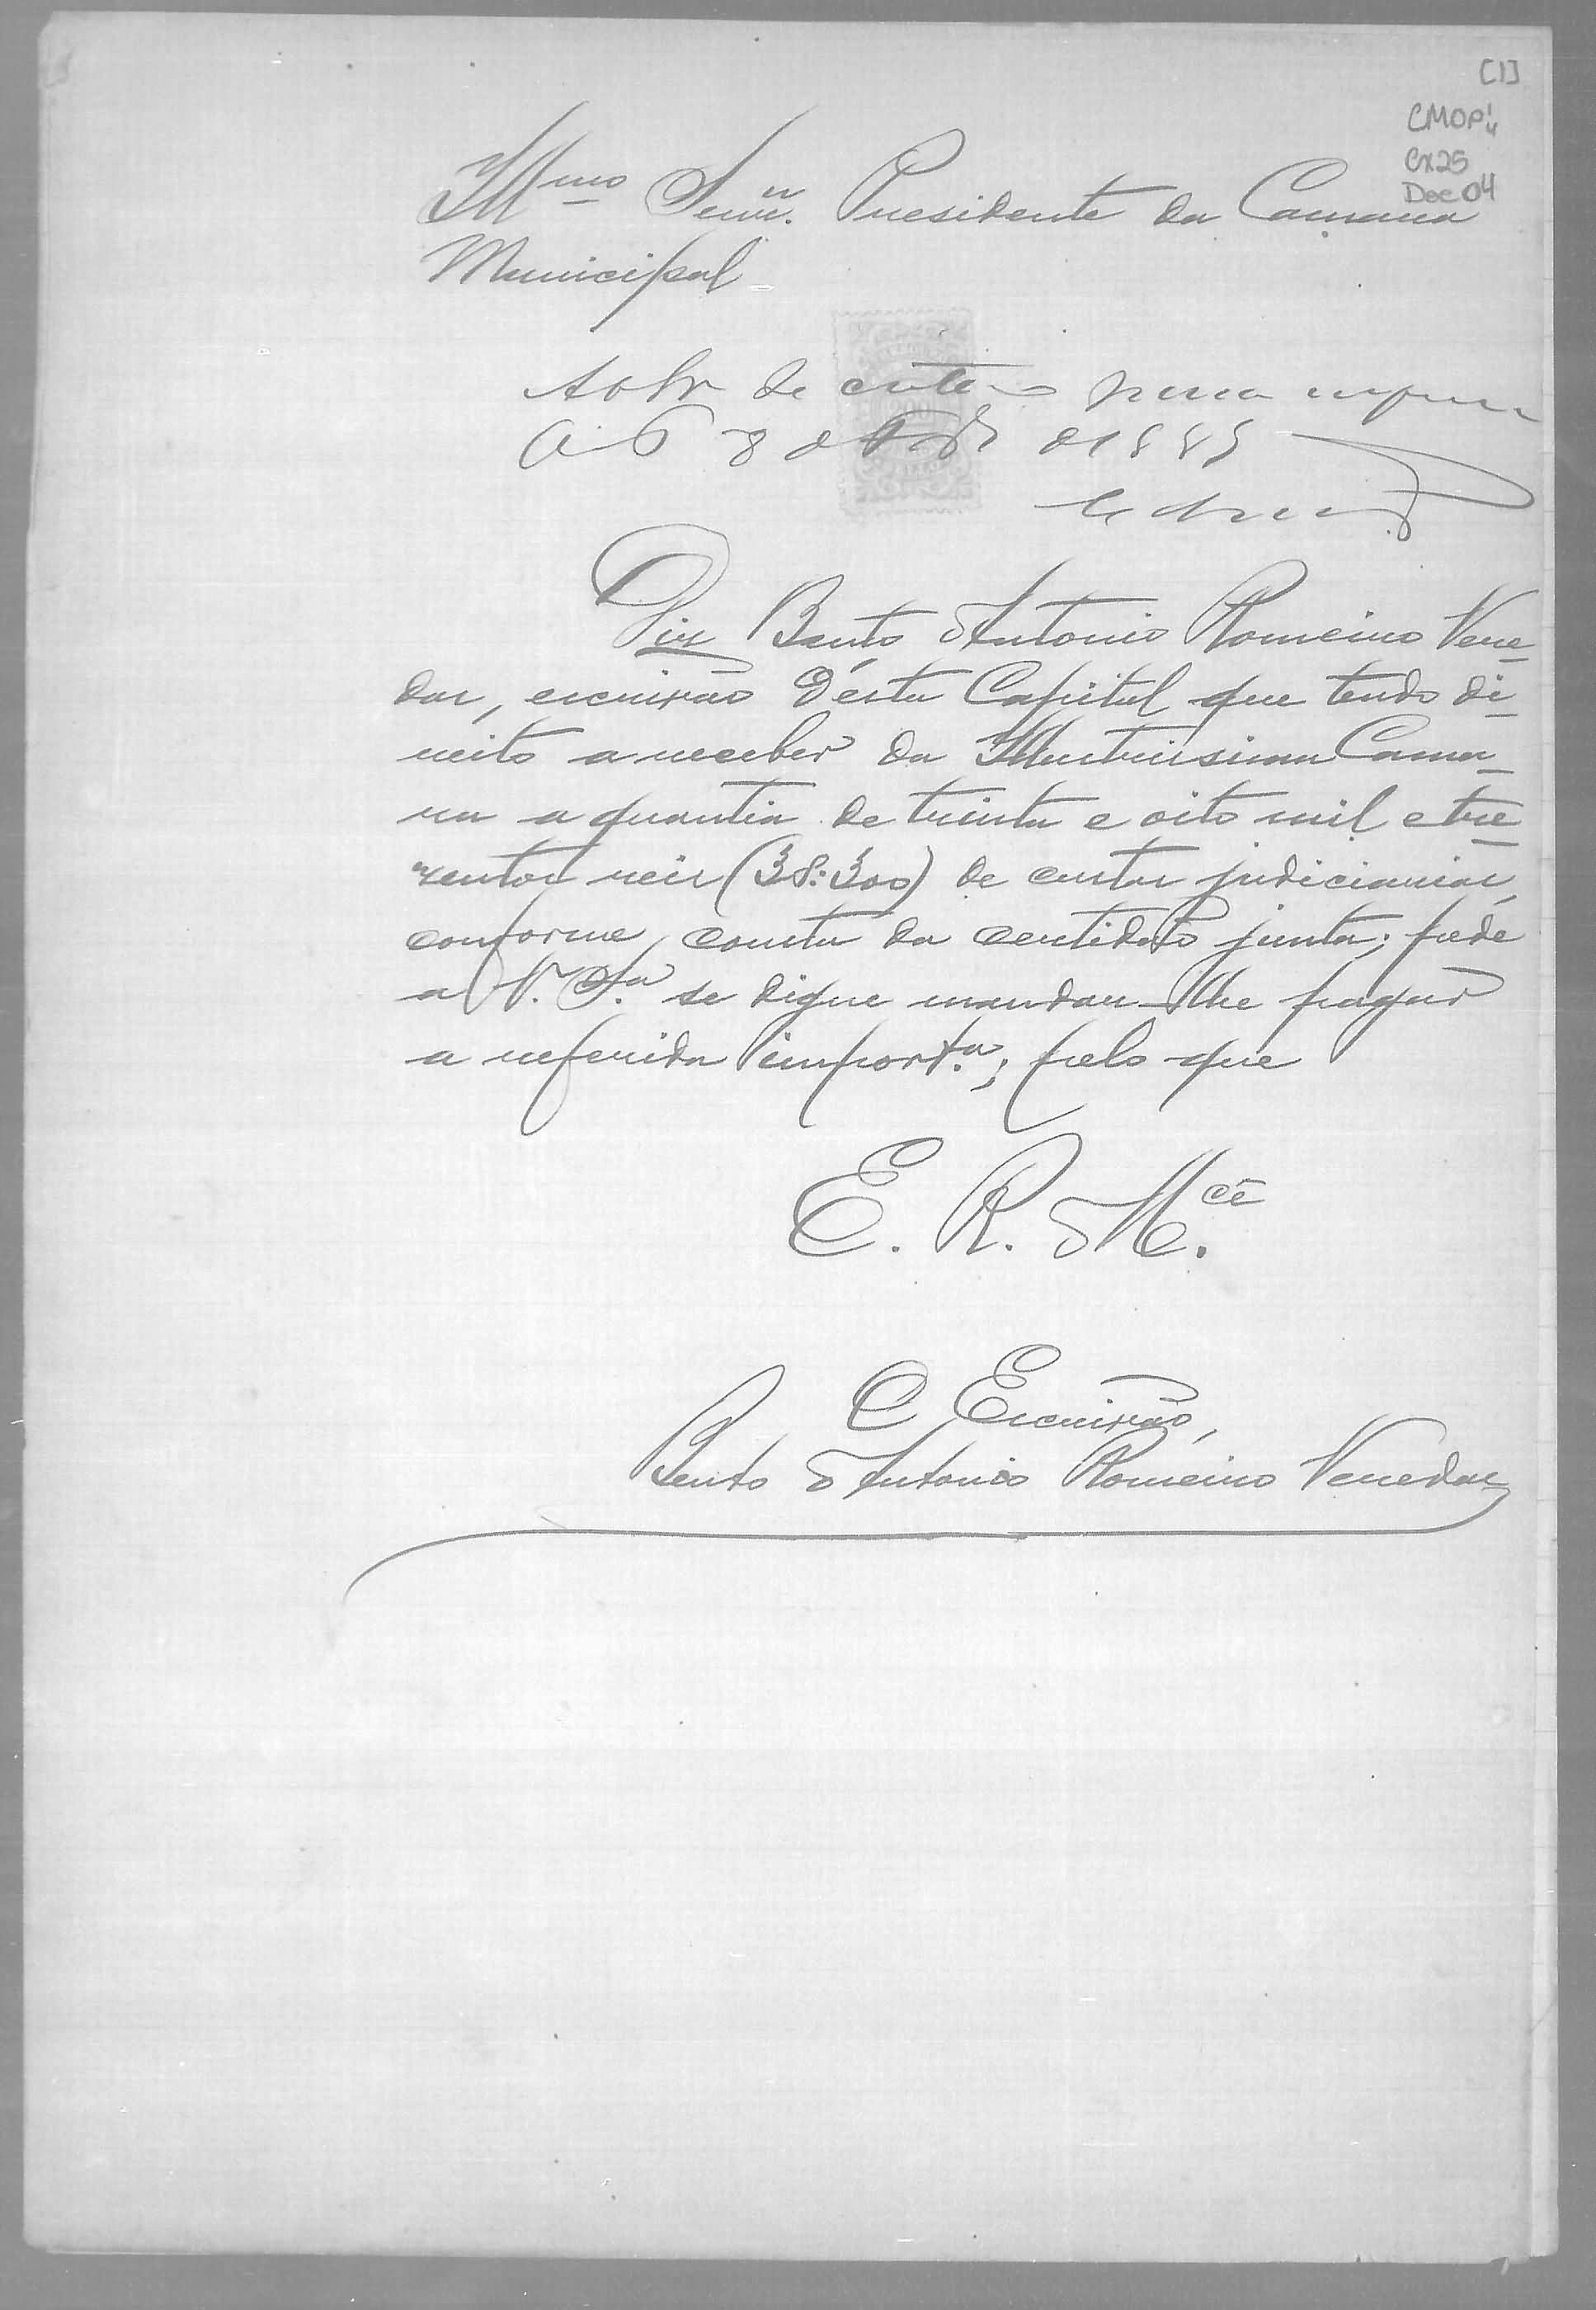 [1]
CMOP
CX25
Doc 04
Illmo Senr. Presidente da Camara
Municipal
de para
8 de de 188
Diz Bento Antonio Romeiro Vere-
das, escrivão d'esta Capital que tendo di-
reito a receber da Illustrissima Cama-
ra a quantia de trinta e oito mil e tre-
zentos reis (38:300) de custas judiciarias,
conforme consta da certidão junta; pede
a V. Sa. se digne mandar-lhe pagar
a referida importa.; pelo que
E. R. Mce.
O Escrivão,
Bento Antonio Romeiro Veredas